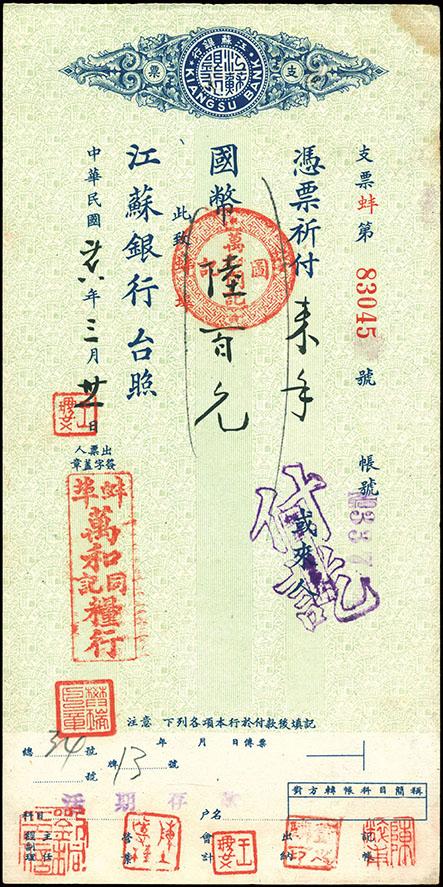 行銀蘇江
KIANGSU BANK
支
票
江蘇銀行
支票蚌第83045號 帳號 337
憑票祈付 來手 或來人
國幣 陸百元
此致
江蘇銀行 台照
中華民國 廿六年三月廿日
出票人
簽字蓋章
蚌埠
萬和同記
糧行
付訖
注意 下列各項本行於付款後填記
年 月 日傳票
總 34 號 牌 13 號
號
對方轉帳科目簡稱
活期存
科目 戶名
主任 營業 會計 出納 記帳